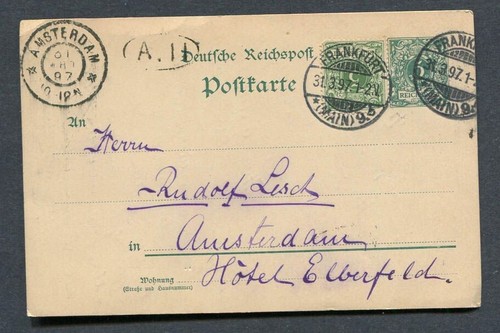 AMSTERDAM
97
10-12N
A.II
Deutsche Reichspost
Postkarte
FRANKFURT
31.3.97.1-2N.
*(MAIN) 9.
FRANKFURT
31.3.97.1-
*(MAIN) 9.
REICH
An
Herrn
Rudolf Lesch
in Amsterdam
Hôtel Elberfeld.
Wohnung
(Straße und Hausnummer)